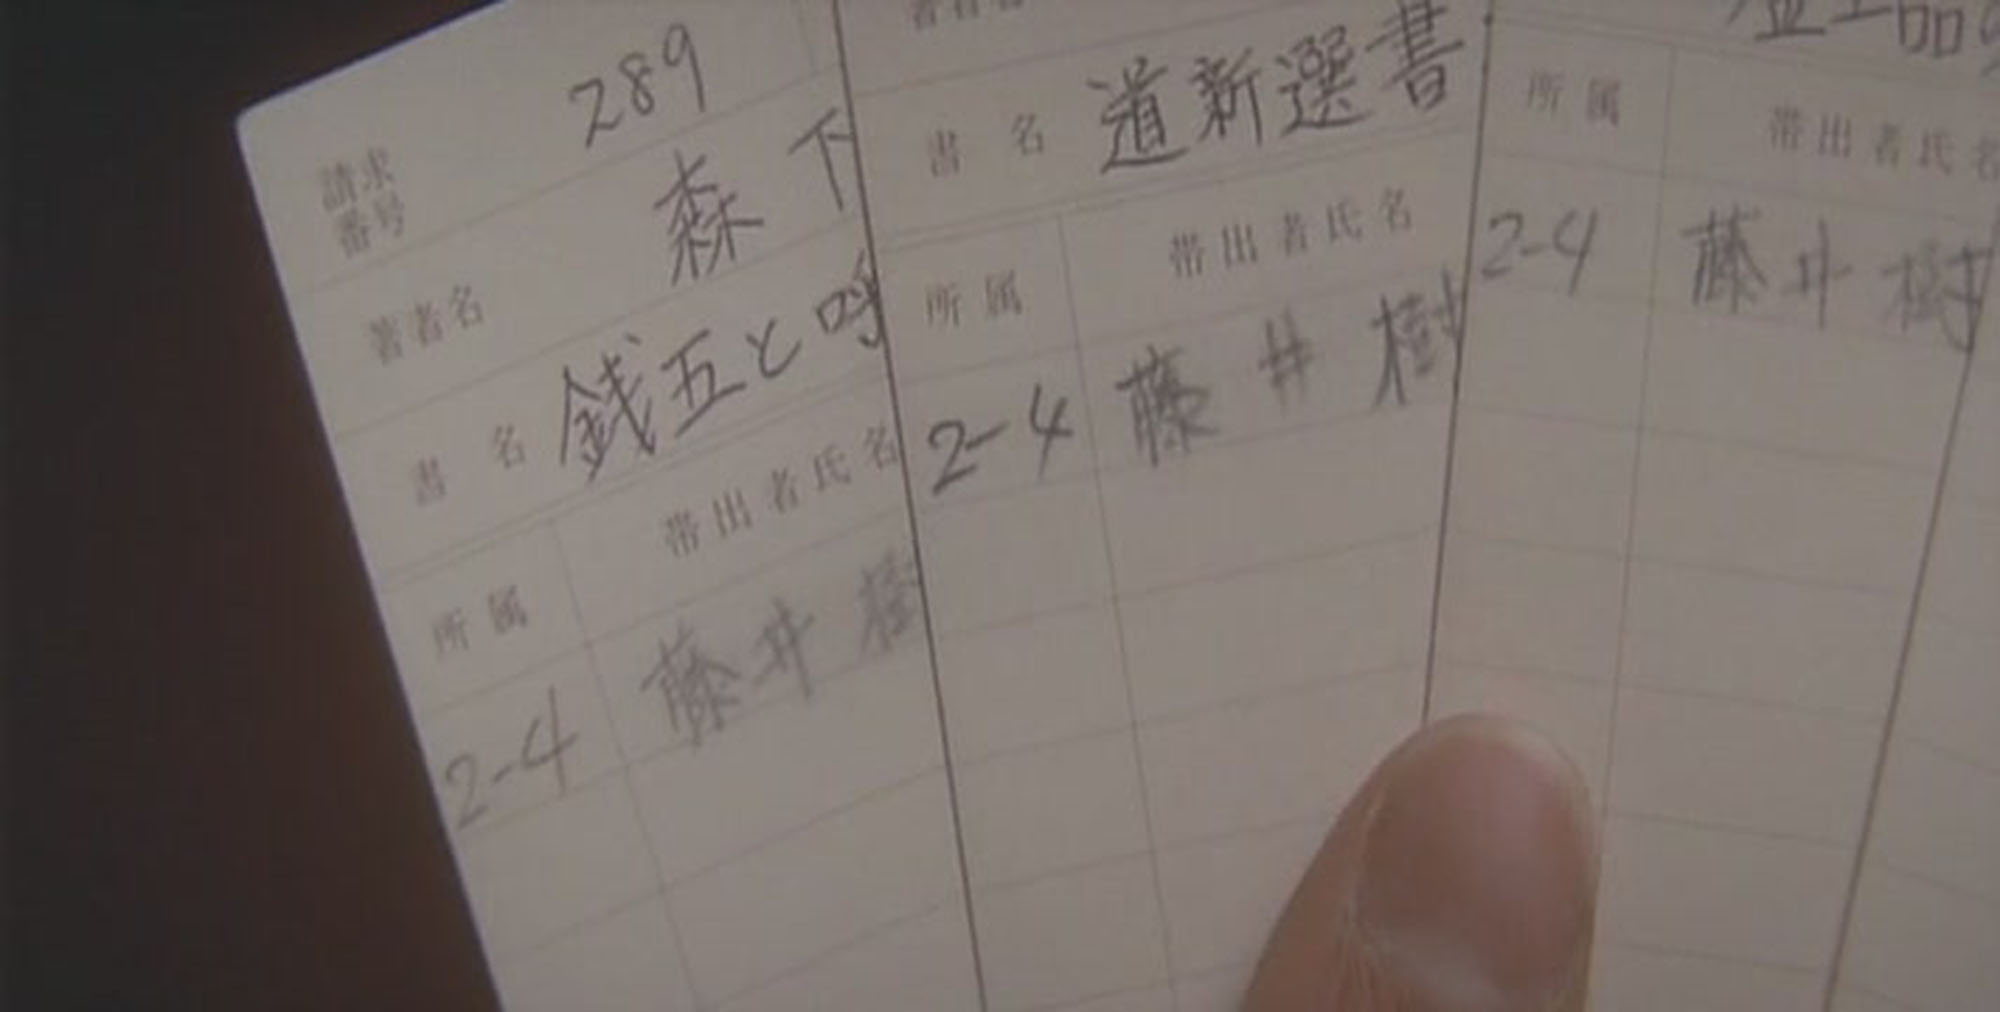 請求
番号
289
著者名
森下
書名
銭五と呼
所属
帯出者氏名
2-4
藤井樹
書名
道新選書
所属
帯出者氏名
2-4
藤井樹
所属
帯出者氏名
2-4
藤井樹